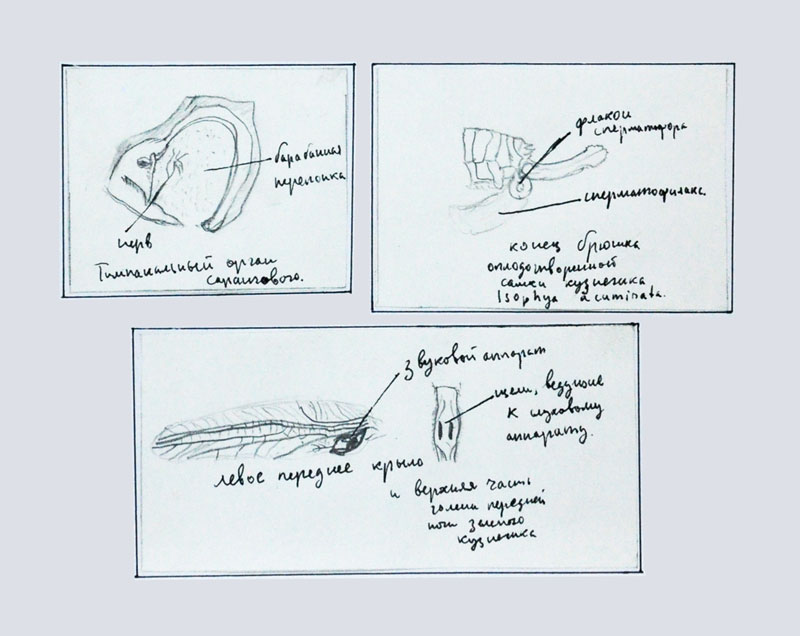 барабанная
перепонка
нерв
Тимпанальный орган
саранчового.
флакон
сперматофора
сперматофилакс.
конец брюшка
оплодотворенной
самки кузнечика
Isophya acuminata.
звуковой аппарат
щели, ведущие
к слуховому
аппарату.
левое переднее крыло
и верхняя часть
голени передней
ноги зеленого
кузнечика